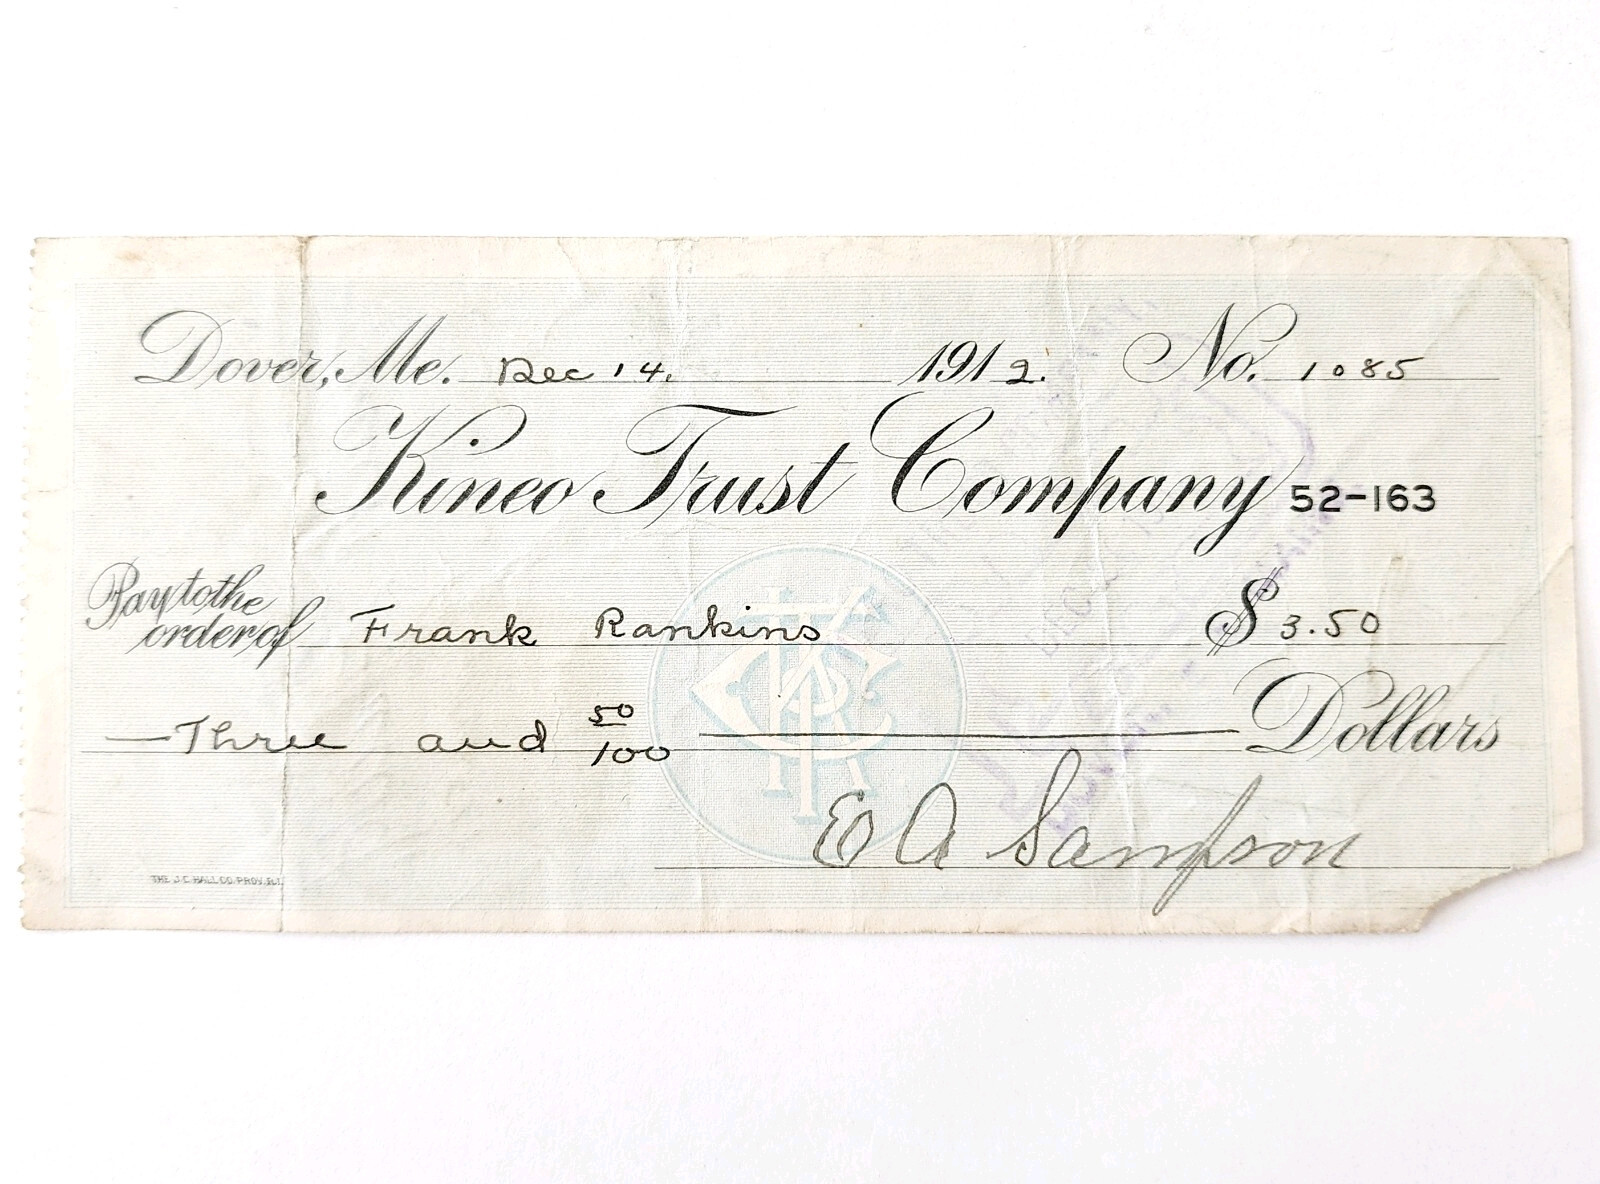 Dover, Me. Dec 14. 1912. No. 1085
Kineo Trust Company 52-163
Pay to the
order of Frank Rankins $3.50
Three and 50/100 Dollars
E A Sampson
THE J.C. HALL CO. PROV. R.I.